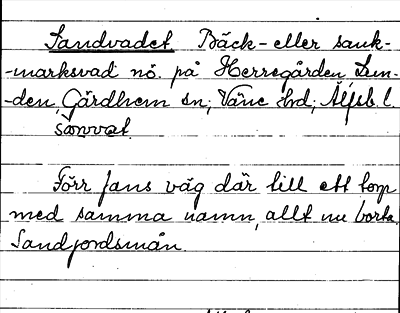 Sandvadet Bäck- eller sank-
-marksvad nö. på Herregården Lun-
-den, Gärdhem sn; Väne hd; Älfsb. l.
Sanvat
Förr fans väg där till ett torp
med samma namn, allt nu borta.
Sandjordsmån.